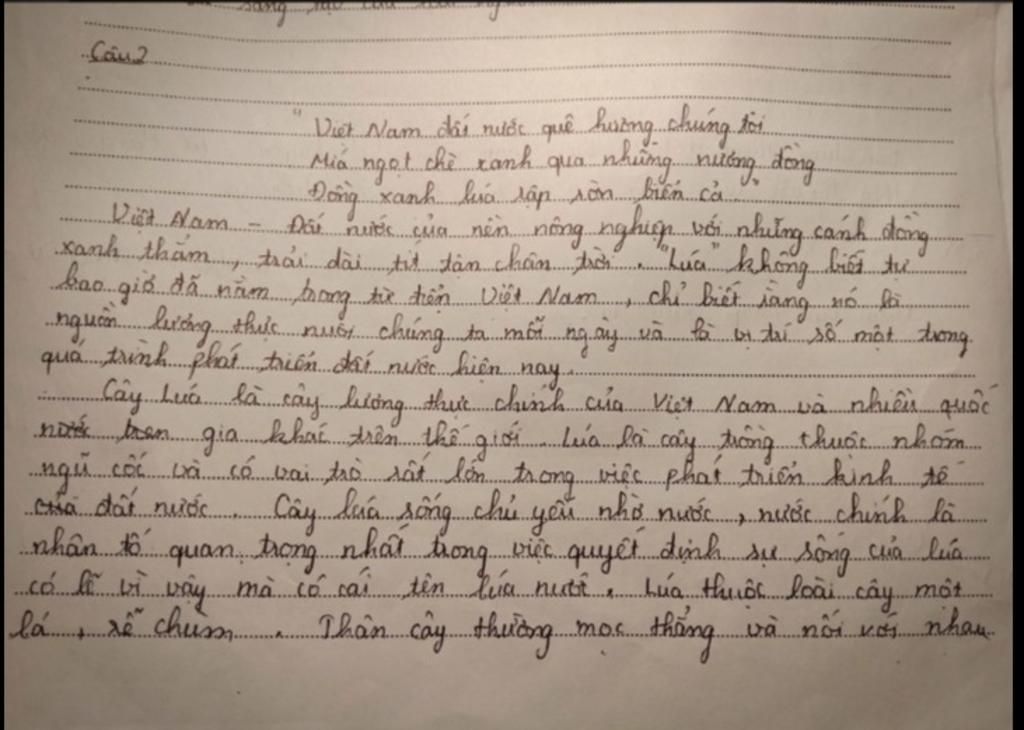 sáng
Câu 2
"Việt Nam đất nước quê hương chúng tôi
Miá ngọt chè xanh qua những nương đồng
Đồng xanh lúa rập rờn biển cả"
Việt Nam - Đất nước của nền nông nghiệp với những cánh đồng
xanh thắm, trải dài tít tận chân trời. "Lúa" không biết tự
bao giờ đã nằm trong từ điển Việt Nam, chỉ biết rằng nó là
nguồn lương thực nuôi chúng ta mỗi ngày và là vị trí số một trong
quá trình phát triển đất nước hiện nay.
Cây Lúa là cây lương thực chính của Việt Nam và nhiều quốc
gia khác trên thế giới. Lúa là cây trồng thuộc nhóm
ngũ cốc và có vai trò rất lớn trong việc phát triển kinh tế
của đất nước. Cây lúa sống chủ yếu nhờ nước, nước chính là
nhân tố quan trọng nhất trong việc quyết định sự sống của lúa
có lẽ vì vậy mà có cái tên lúa nước. Lúa thuộc loài cây một
lá, rễ chùm. Thân cây thường mọc thẳng và nối với nhau